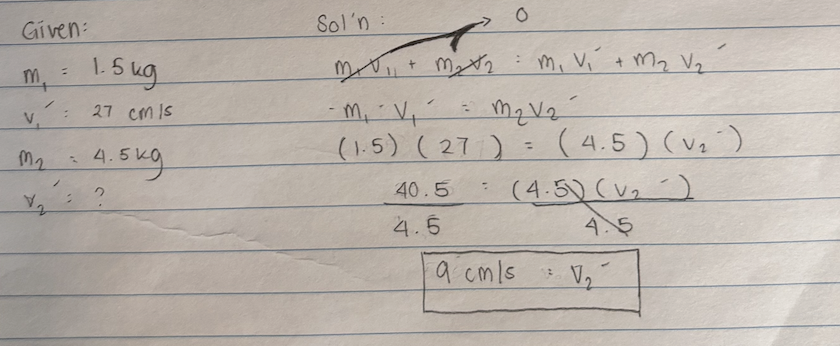 Given:
m₁ = 1.5 kg
v₁′ = 27 cm/s
m₂ = 4.5 kg
v₂′ = ?
Sol'n :
0
m₁v₁₁ + m₂v₂ = m₁v₁′ + m₂v₂′
-m₁ · v₁′ = m₂v₂′
(1.5) (27) = (4.5) (v₂′)
40.5 = (4.5) (v₂′)
4.5 4.5
9 cm/s = v₂′